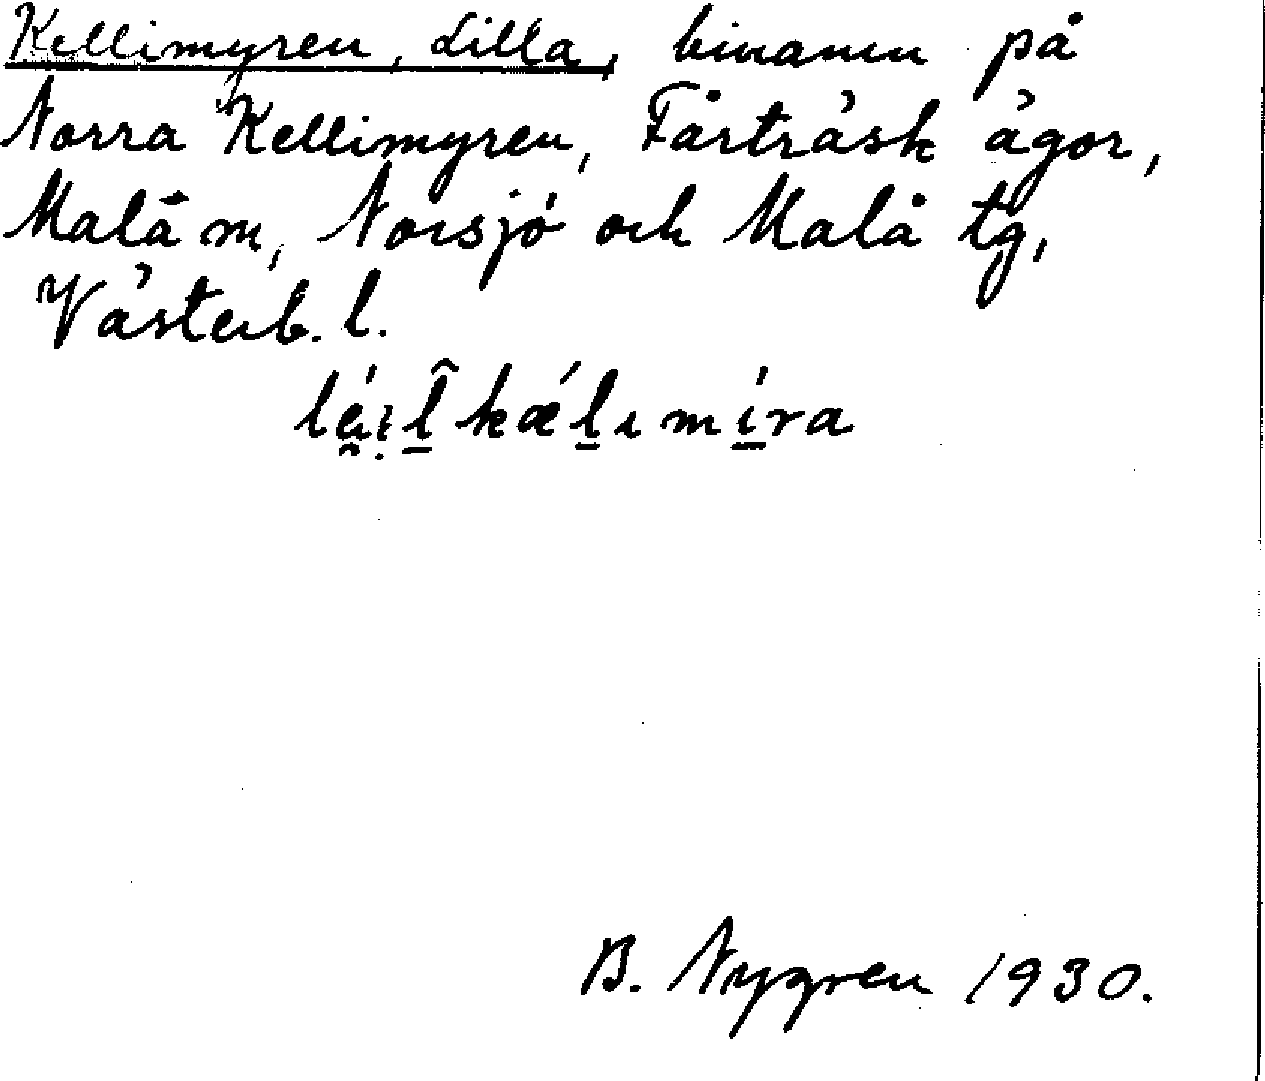 Kellimyren, Lilla, binamn på
Norra Kellimyren, Fårträsk ägor,
Malå sn, Norsjö och Malå tg,
Västerb. l.
B. Nygren 1930.